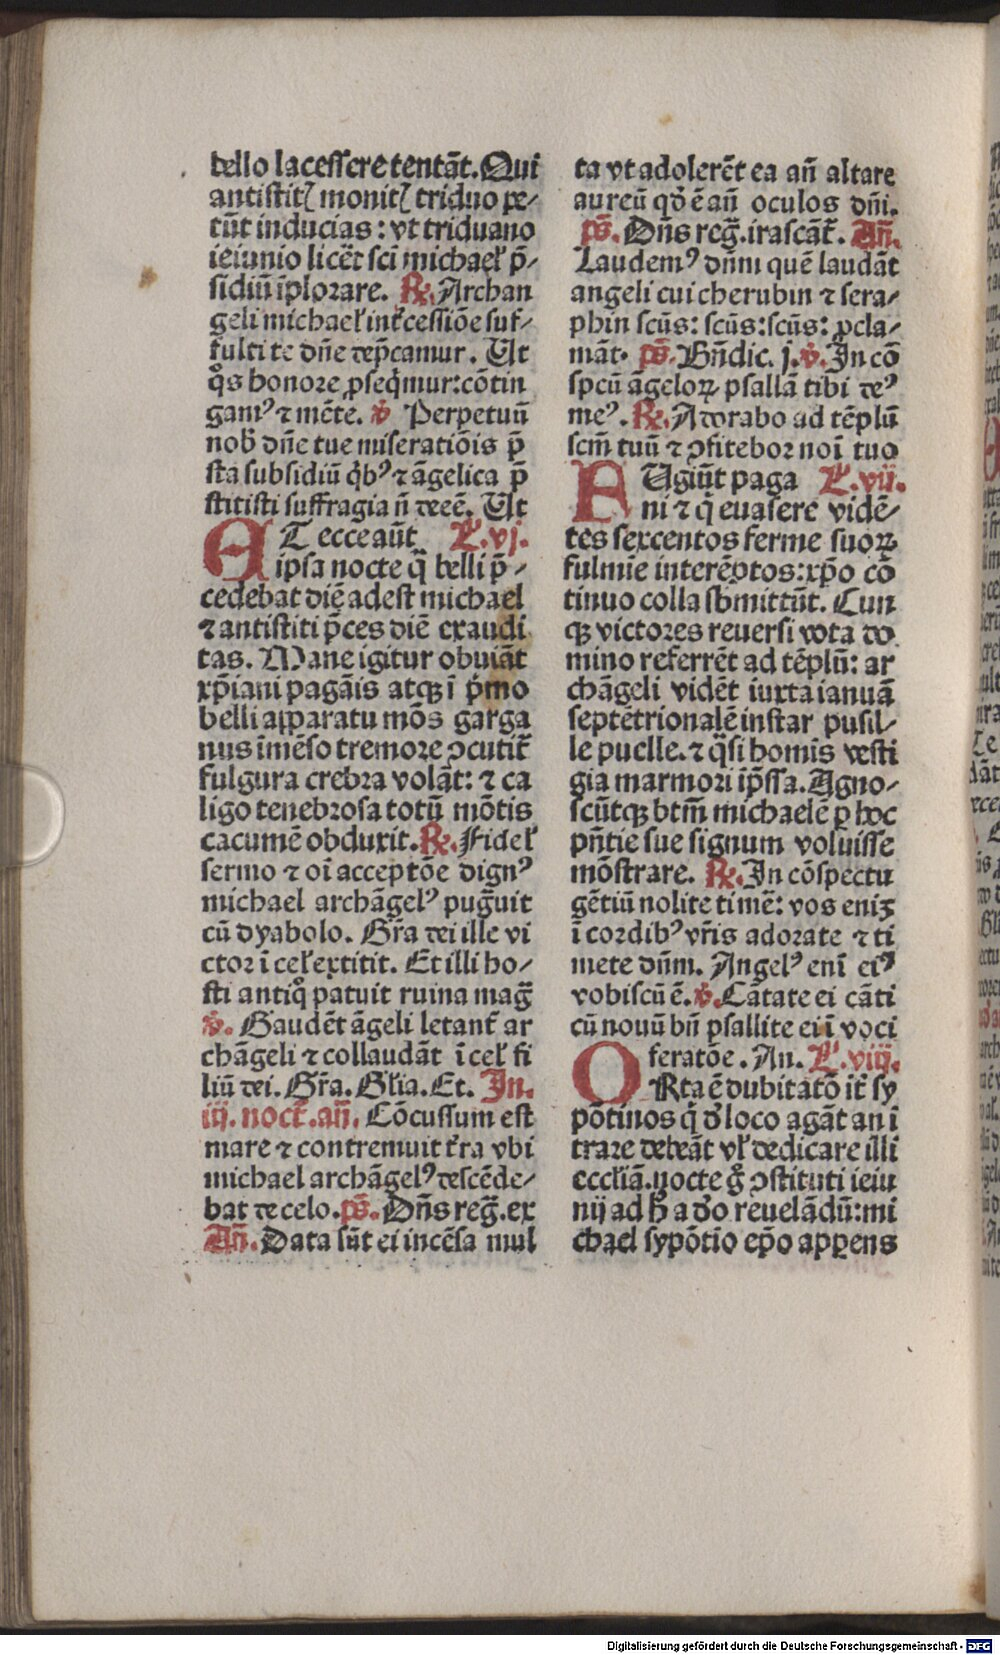 bello lacessere tentāt. Qui
antistitꝭ monitꝭ triduo pe⸗
tūt inducias: vt triduano
ieiunio licēt scī michael̕ p̄⸗
sidiū īplorare. ℞. Archan
geli michael̕ int̕cessiōe suf⸗
fulti te dn̄e dep̄camur. Ut
qͦs honore ꝓseqͥmur: cōtin
gamꝰ ⁊ mēte. ℣ Perpetuū
nob̕ dn̄e tue miseratiōis p̄
sta subsidiū qͥbꝰ ⁊ āgelica p̄
stitisti suffragia n̄ deeē. Ut
AT ecce aūt L̕. vj.
ipsa nocte q̄ belli p̄⸗
cedebat diē adest michael
⁊ antistiti p̄ces diē exaudi
tas. Mane igitur obuiāt
xp̄iani pagāis atqꝫ ī pͥmo
belli apparatu mōs garga
nus īmēso tremore ꝯcutit̕
fulgura crebra volāt: ⁊ ca
ligo tenebrosa totū mōtis
cacumē obduxit. ℞. Fidel̕
sermo ⁊ oī acceptōe dignꝰ
michael archāgelꝰ pugͣuit
cū dyabolo. Gr̄a dei ille vi
ctor ī cel̕ extitit. Et illi ho⸗
sti antiqͦ patuit ruina maḡ
℣. Gaudēt āgeli letant̕ ar
chāgeli ⁊ collaudāt ī cel̕ fi
liū dei. Gr̄a. Gl̕ia. Et. In.
iij. noct̕. an̄. Cōcussum est
mare ⁊ contremuit t̕ra vbi
michael archāgelꝰ descēde⸗
bat de celo. ps̄. Dn̄s reḡ. ex
An̄. Data sūt ei incēsa mul
ta vt adolerēt ea an̄ altare
aureū qd̕ ē an̄ oculos dn̄i.
ps̄. Dn̄s reḡ. irascāt̕. An̄.
Laudemꝰ dn̄m quē laudāt
angeli cui cherubin ⁊ sera⸗
phin scūs: scūs: scūs: ꝓcla⸗
māt. ps̄. Bn̄dic. j. ℣. In cō
spcū āgeloꝝ psallā tibi deꝰ
meꝰ. ℞. Adorabo ad tēplū
scm̄ tuū ⁊ ꝯfitebor noī tuo
FUgiūt paga L̕. vij.
ni ⁊ qͥ euasere vidē⸗
tes sexcentos ferme suoꝝ
fulmīe interēptos: xp̄o cō
tinuo colla sb̕mittūt. Cun
qꝫ victores reuersi vota do
mino referrēt ad tēplū: ar
chāgeli vidēt iuxta ianuā
septētrionalē instar pusil⸗
le puelle. ⁊ qͣsi homīs vesti
gia marmori īp̄ssa. Agno⸗
scūtqꝫ btm̄ michaelē ꝑ hoc
pn̄tie sue signum voluisse
mōstrare. ℞. In cōspectu
gētiū nolite timē: vos enīꝫ
ī cordibꝰ vr̄is adorate ⁊ ti
mete dn̄m. Angelꝰ enī eiꝰ
vobiscū ē. ℣. Cātate ei cāti
cū nouū bn̄ psallite ei ī voci
feratōe. An. L̕. viij.
ORta ē dubitatō it̕ sy
pōtinos qͥ d̕ loco agāt an ī
trare debeāt vl̕ dedicare illi
eccl̕iā. nocte gͦ ꝯstituti ieiu
nij ad ħ a d̕o reuelādū: mi
chael sypōtio ep̄o apꝑens
Digitalisierung gefördert durch die Deutsche Forschungsgemeinschaft - DFG